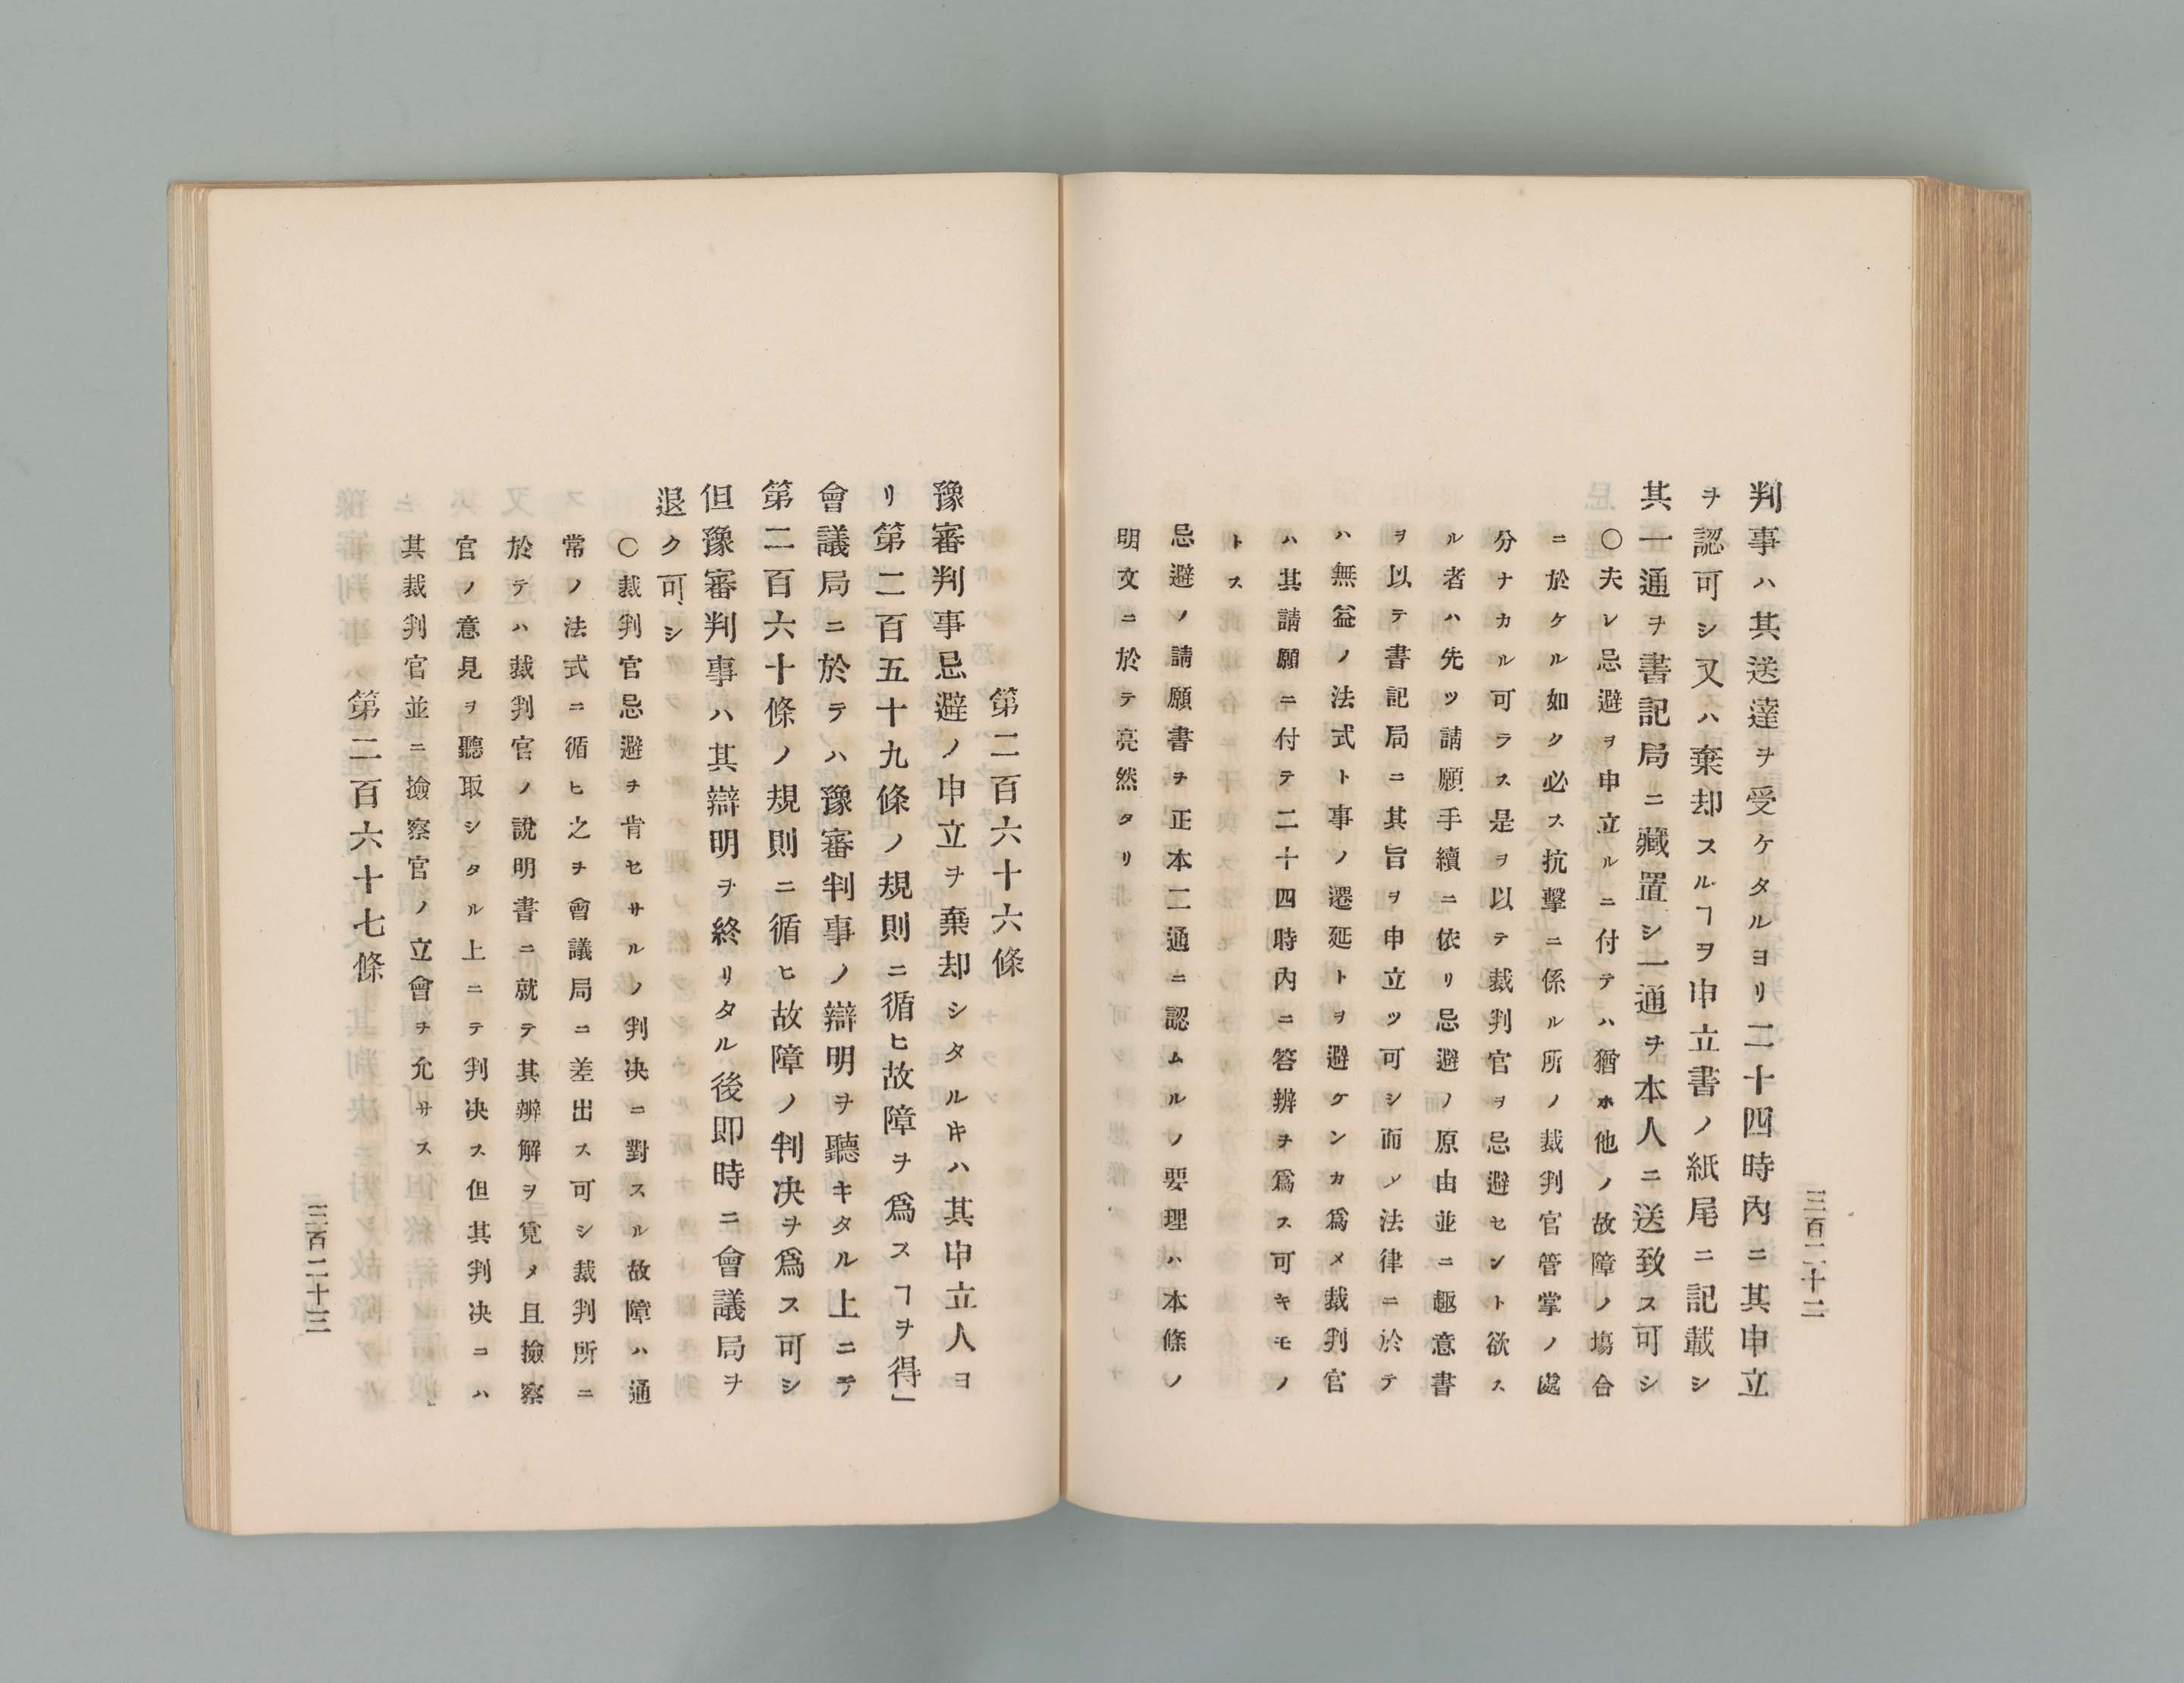 三百二十二
判事ハ其送達ヲ受ケタルヨリ二十四時内ニ其申立
ヲ認可シ又ハ棄却スルヿヲ申立書ノ紙尾ニ記載シ
其一通ヲ書記局ニ藏置シ一通ヲ本人ニ送致ス可シ
〇夫レ忌避ヲ申立ルニ付テハ猶ホ他ノ故障ノ塲合
ニ於ケル如ク必ス抗擊ニ係ル所ノ裁判官管掌ノ處
分ナカル可ラス是ヲ以テ裁判官ヲ忌避セント欲ス
ル者ハ先ツ請願手續ニ依リ忌避ノ原由並ニ趣意書
ヲ以テ書記局ニ其旨ヲ申立ツ可シ而〆法律ニ於テ
ハ無益ノ法式ト事ノ遷延トヲ避ケンカ爲メ裁判官
ハ其請願ニ付テ二十四時內ニ答辨ヲ爲ス可キモノ
トス
忌避ノ請願書ヲ正本二通ニ認ムルノ要理ハ本條ノ
明文ニ於テ亮然タリ
第二百六十六條
豫審判事忌避ノ申立ヲ棄却シタルキハ其申立人ヨ
リ第二百五十九條ノ規則ニ循ヒ故障ヲ爲スヿヲ得」
會議局ニ於テハ豫審判事ノ辯明ヲ聽キタル上ニテ
第二百六十條ノ規則ニ循ヒ故障ノ判决ヲ爲ス可シ
但豫審判事ハ其辯明ヲ終リタル後即時ニ會議局ヲ
退ク可シ
〇裁判官忌避ヲ肯セサルノ判决ニ對スル故障ハ通
常ノ法式ニ循ヒ之ヲ會議局ニ差出ス可シ裁判所ニ
於テハ裁判官ノ說明書ニ就テ其辨解ヲ覓メ且撿察
官ノ意見ヲ聽取シタル上ニテ判决ス但其判决ニハ
其裁判官並ニ撿察官ノ立會ヲ允サス
第二百六十七條
三百二十三